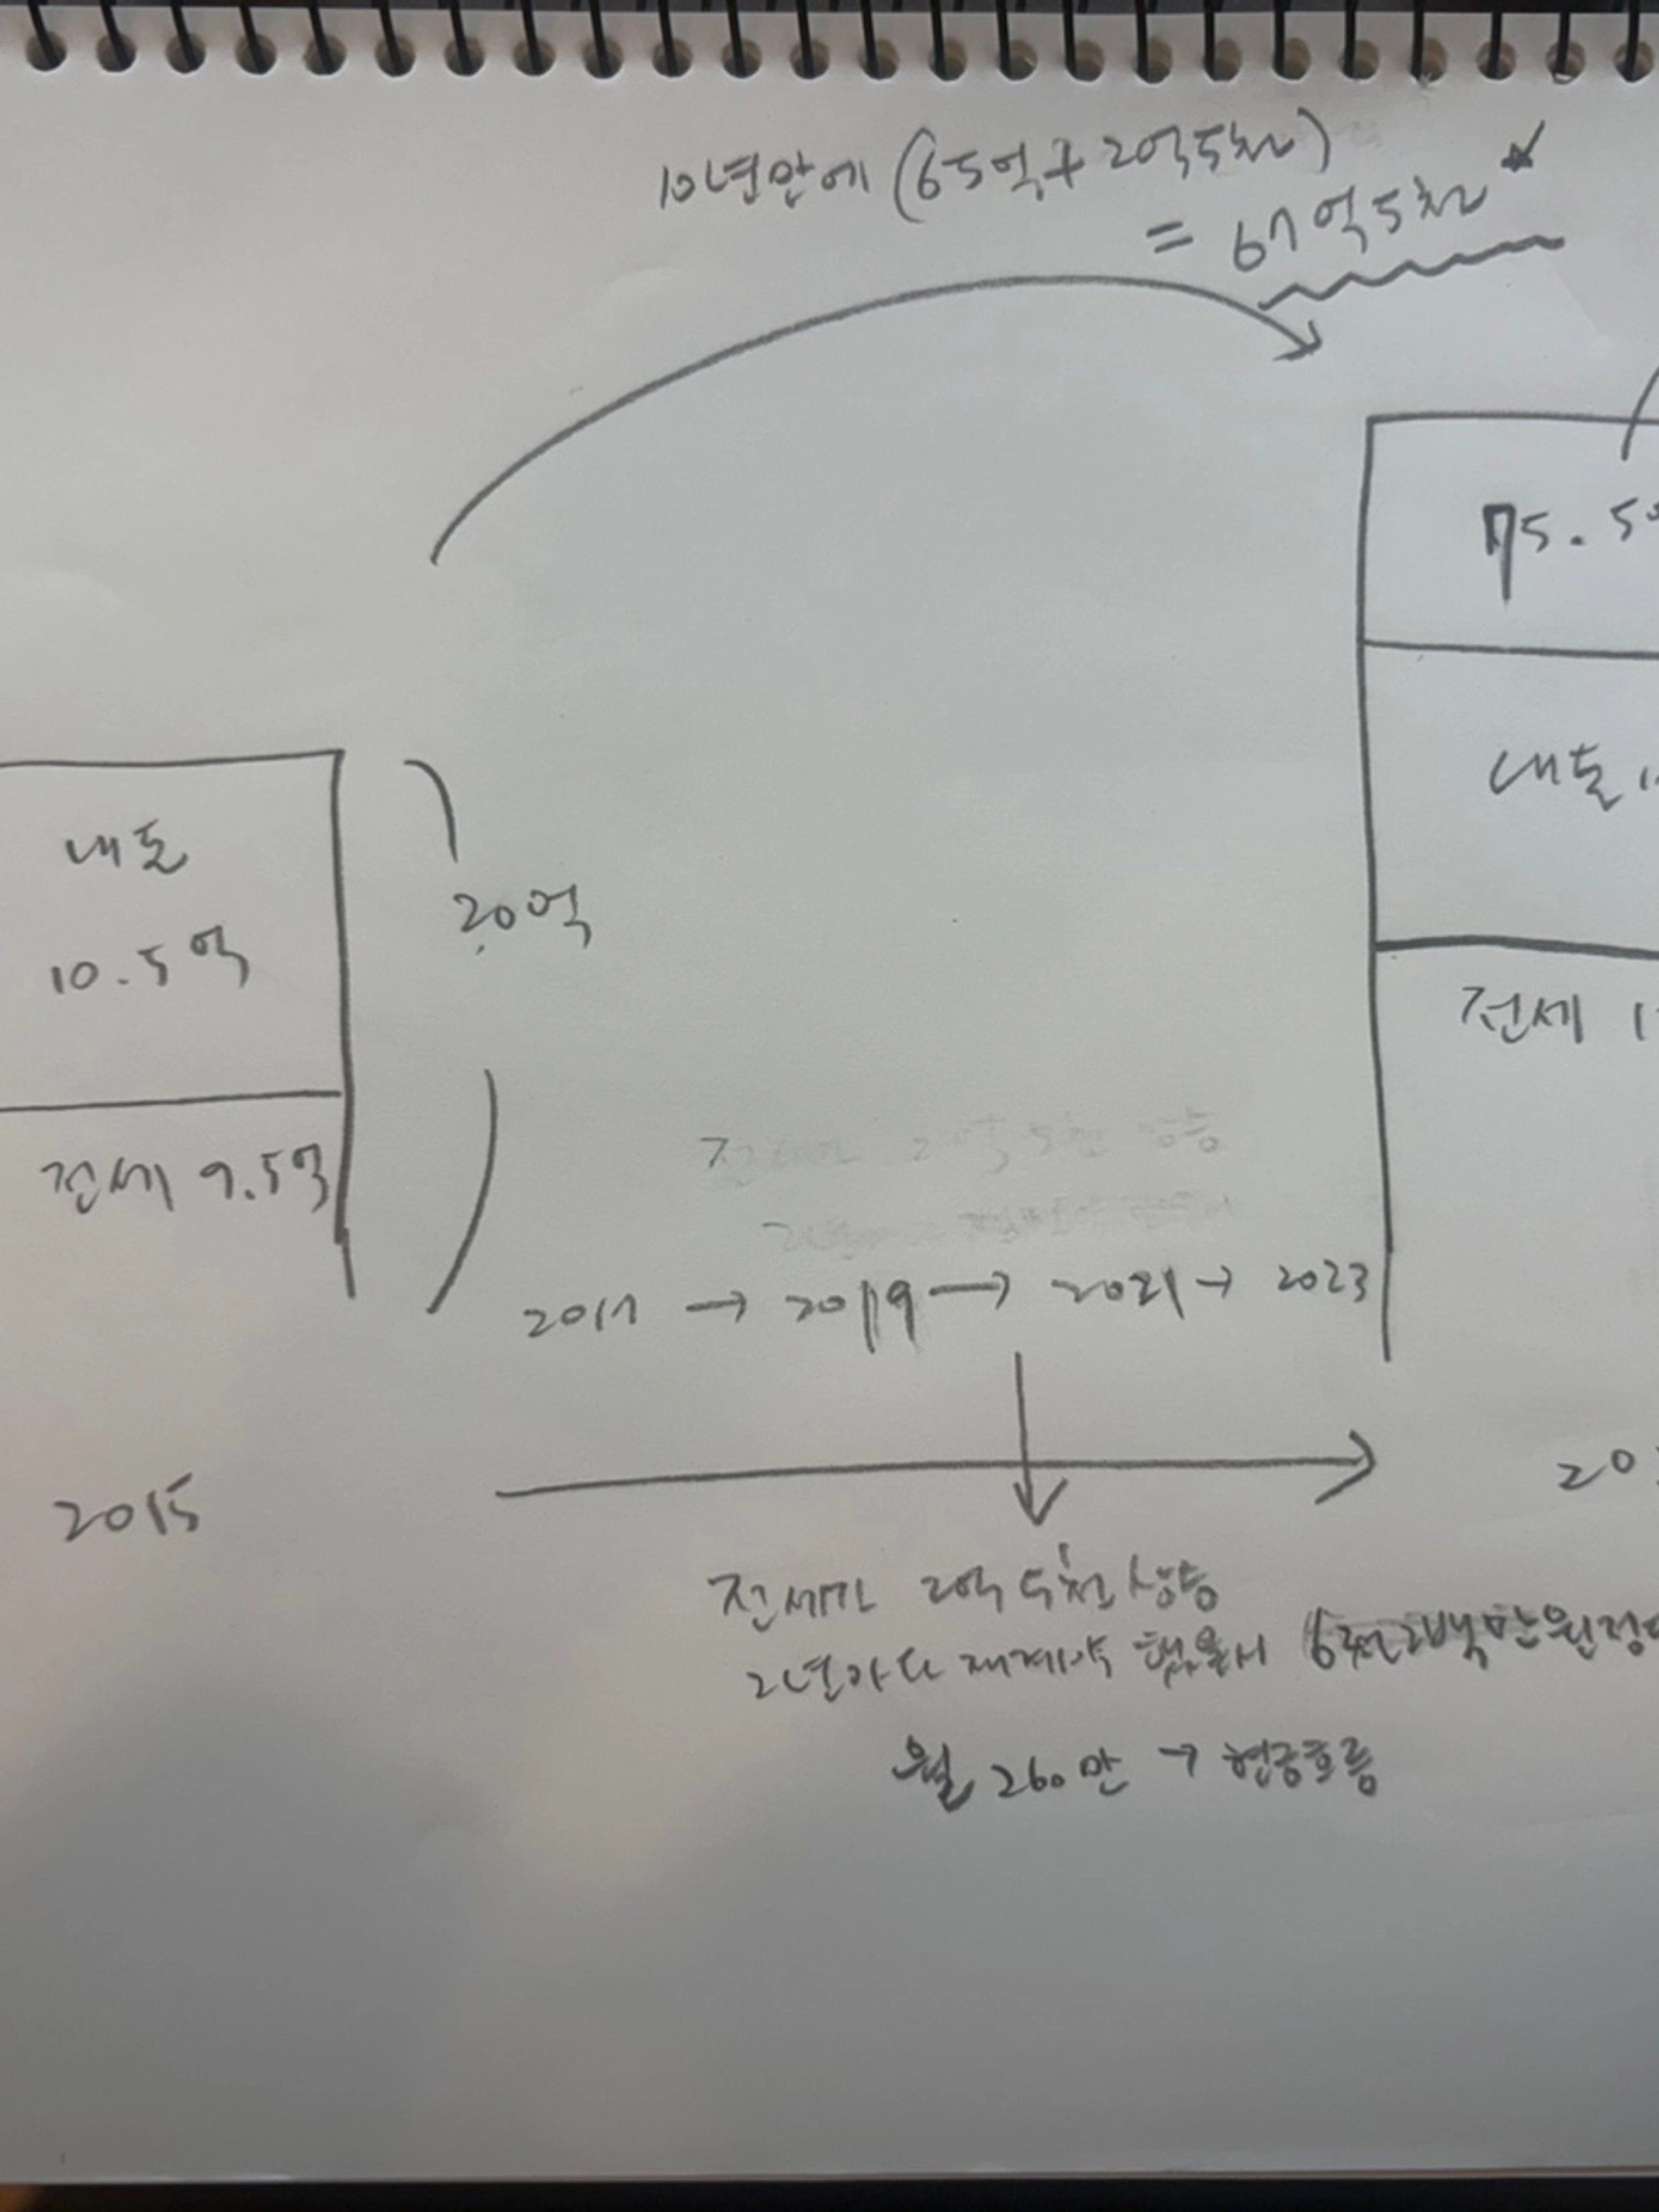 10년만에 (65억 + 2억5천)
= 67억5천
75.5
내돈
10.5억
20억
내돈 1
전세 9.5억
전세 1
2017 → 2019 → 2021 → 2023
2015
20
전세가 2억 5천 상승
2년마다 재계약 했을시 6천2백만원정
월 260만 → 현금흐름